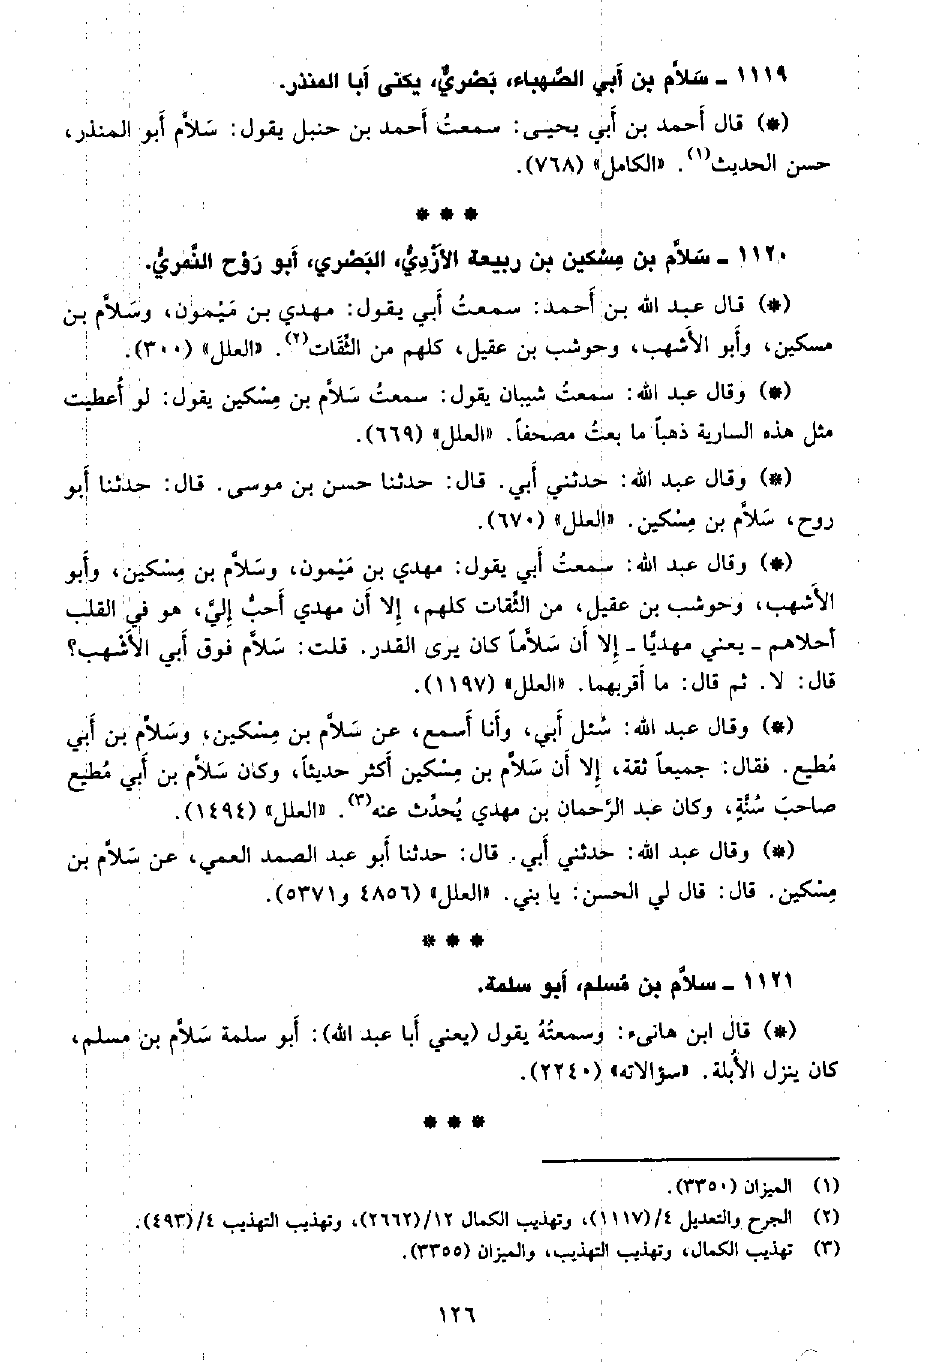 ١١١٩ ـ سَلاَّم بن أبي الصَّهباء، بَصْريٌّ، يكنى أبا المنذر.
(*) قال أحمد بن أبي يحيى: سمعتُ أحمد بن حنبل يقول: سَلاَّم أبو المنذر،
حسن الحديث(١). «الكامل» (٧٦٨).
* * *
١١٢٠ ـ سَلاَّم بن مِسْكين بن ربيعة الأَزْديُّ، البَصْري، أبو رَوْح النَّمَريُّ.
(*) قال عبد الله بن أحمد: سمعتُ أبي يقول: مهدي بن مَيْمون، وسَلاَّم بن
مسكين، وأبو الأشهب، وحوشب بن عقيل، كلهم من الثِّقَات(٢). «العلل» (٣٠٠).
(*) وقال عبد الله: سمعتُ شيبان يقول: سمعتُ سَلاَّم بن مِسْكين يقول: لو أُعطيت
مثل هذه السارية ذهباً ما بعتُ مصحفاً. «العلل» (٦٦٩).
(*) وقال عبد الله: حدثني أبي. قال: حدثنا حسن بن موسى. قال: حدثنا أبو
روح، سَلاَّم بن مِسْكين. «العلل» (٦٧٠).
(*) وقال عبد الله: سمعتُ أبي يقول: مهدي بن مَيْمون، وسَلاَّم بن مِسْكين، وأبو
الأشهب، وحوشب بن عقيل، من الثِّقات كلهم، إلا أن مهدي أحبُّ إليَّ، هو في القلب
أحلاهم ـ يعني مهديًّا ـ إلا أن سَلاَّماً كان يرى القدر. قلت: سَلاَّم فوق أبي الأَشْهب؟
قال: لا. ثم قال: ما أقربهما. «العلل» (١١٩٧).
(*) وقال عبد الله: سُئل أبي، وأنا أسمع، عن سَلاَّم بن مِسْكين، وسَلاَّم بن أبي
مُطيع. فقال: جميعاً ثقة، إلا أن سَلاَّم بن مِسْكين أكثر حديثاً، وكان سَلاَّم بن أبي مُطيع
صاحبَ سُنَّةٍ، وكان عبد الرَّحمان بن مهدي يُحدِّث عنه(٣). «العلل» (١٤٩٤).
(*) وقال عبد الله: حدثني أبي. قال: حدثنا أبو عبد الصمد العمي، عن سَلاَّم بن
مِسْكين. قال: قال لي الحسن: يا بني. «العلل» (٤٨٥٦ و٥٣٧١).
* * *
١١٢١ ـ سلاَّم بن مُسلم، أبو سلمة.
(*) قال ابن هانىء: وسمعتُهُ يقول (يعني أبا عبد الله): أبو سلمة سَلاَّم بن مسلم،
كان ينزل الأُبلة. «سؤالاته» (٢٢٤٠).
* * *
(١) الميزان (٣٣٥٠).
(٢) الجرح والتعديل ٤/(١١١٧)، وتهذيب الكمال ١٢/(٢٦٦٢)، وتهذيب التهذيب ٤/(٤٩٣).
(٣) تهذيب الكمال، وتهذيب التهذيب، والميزان (٣٣٥٥).
١٢٦